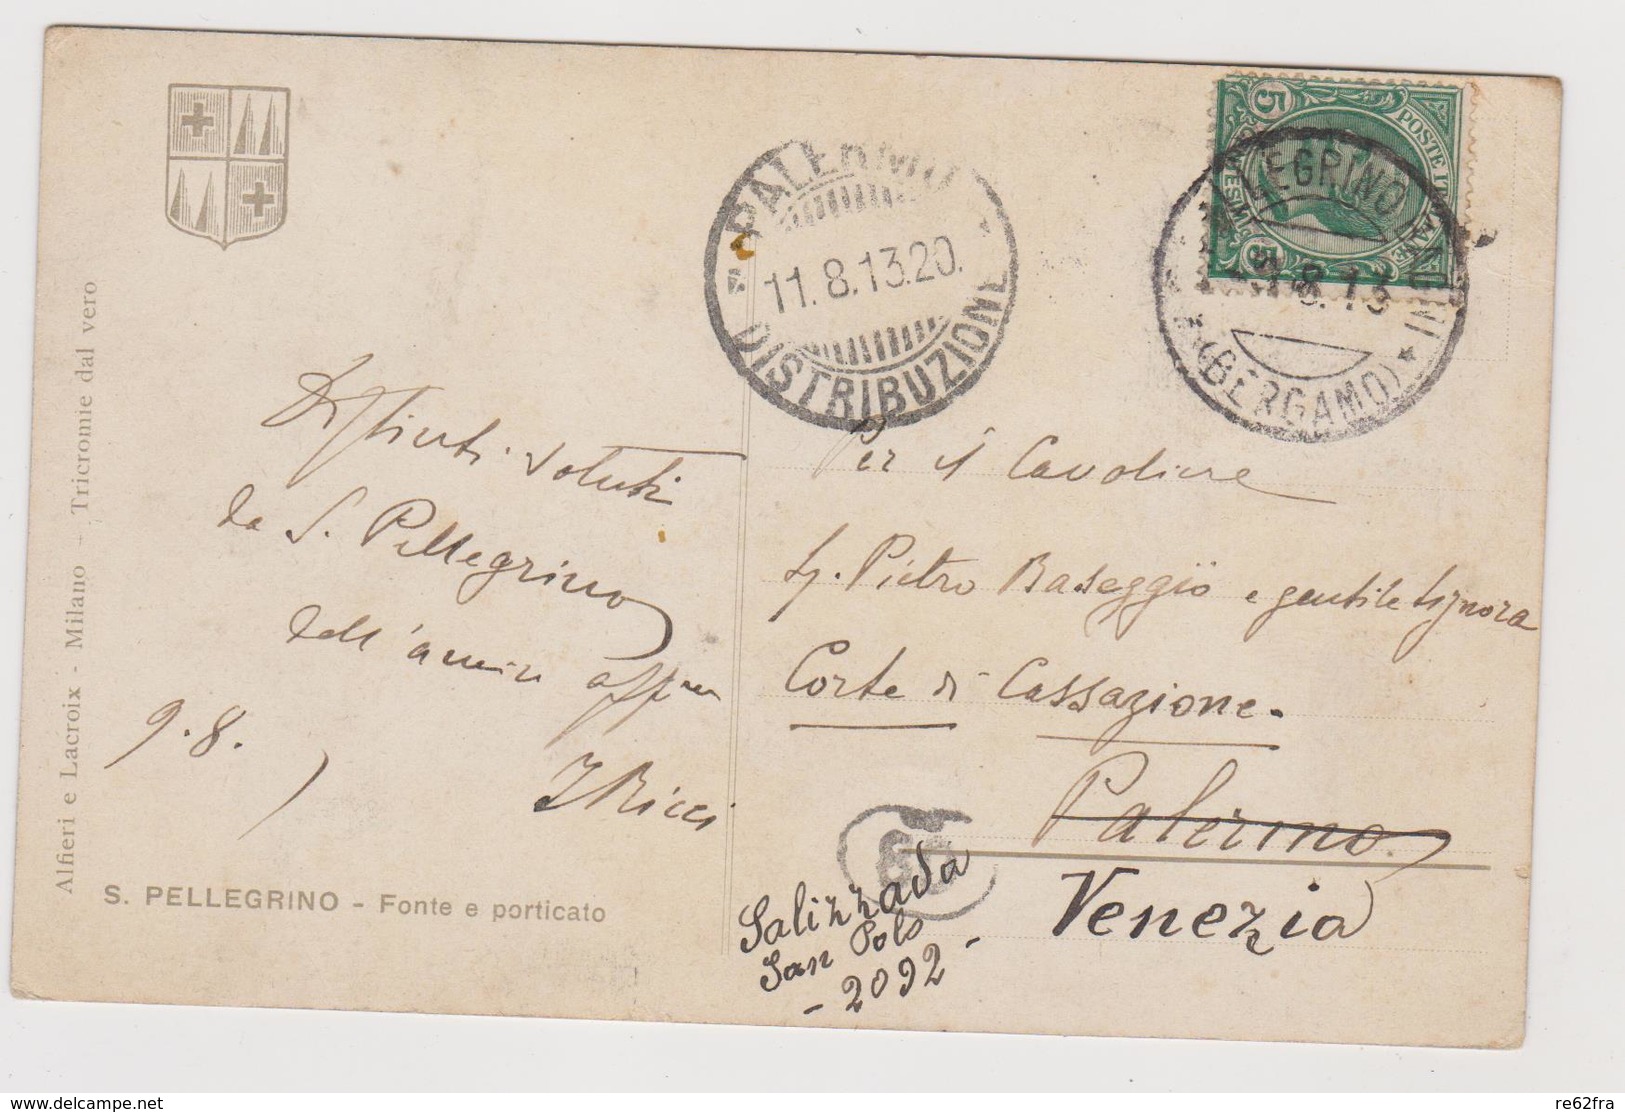 Alfieri e Lacroix - Milano - Tricromie dal vero
PALERMO
11.8.13.20.
DISTRIBUZIONE
5
POSTE ITALIANE
5
LEGRINO
8.13
(BERGAMO)
saluti
da S. Pellegrino
dall'amico
9.8.
J Ricci
S. PELLEGRINO - Fonte e porticato
Per il Cavaliere
Sig. Pietro Baseggio e gentile Signora
Corte di Cassazione.
Palermo
Venezia
Salizzada
San Polo
- 2092 -
delcampe.net
re62fra